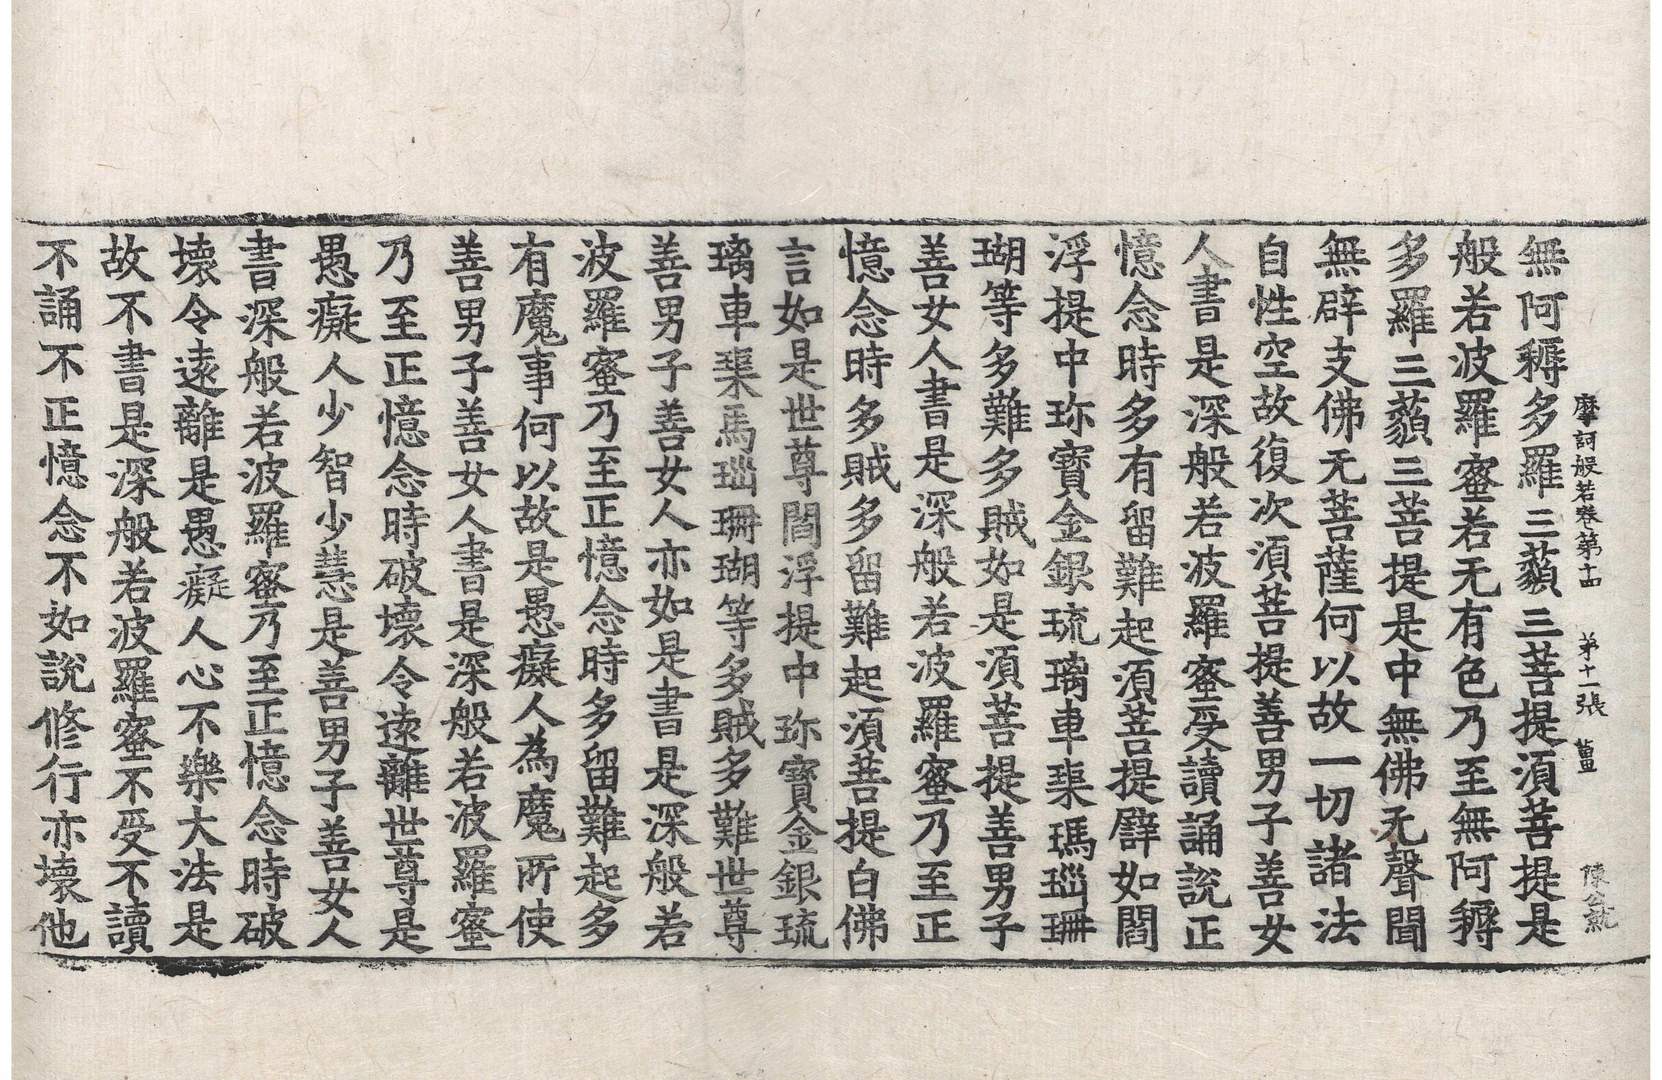 摩訶般若卷第十四　第十一張　薑
無阿耨多羅三藐三菩提須菩提是
般若波羅蜜若无有色乃至無阿耨
多羅三藐三菩提是中無佛无聲聞
無辟支佛无菩薩何以故一切諸法
自性空故復次須菩提善男子善女
人書是深般若波羅蜜受讀誦說正
憶念時多有留難起須菩提譬如閻
浮提中珎寶金銀琉璃車渠瑪瑙珊
瑚等多難多賊如是須菩提善男子
善女人書是深般若波羅蜜乃至正
憶念時多賊多留難起須菩提白佛
言如是世尊閻浮提中珎寶金銀琉
璃車渠馬瑙珊瑚等多賊多難世尊
善男子善女人亦如是書是深般若
波羅蜜乃至正憶念時多留難起多
有魔事何以故是愚癡人為魔所使
善男子善女人書是深般若波羅蜜
乃至正憶念時破壞令遠離世尊是
愚癡人少智少慧是善男子善女人
書深般若波羅蜜乃至正憶念時破
壞令遠離是愚癡人心不樂大法是
故不書是深般若波羅蜜不受不讀
不誦不正憶念不如說修行亦壞他